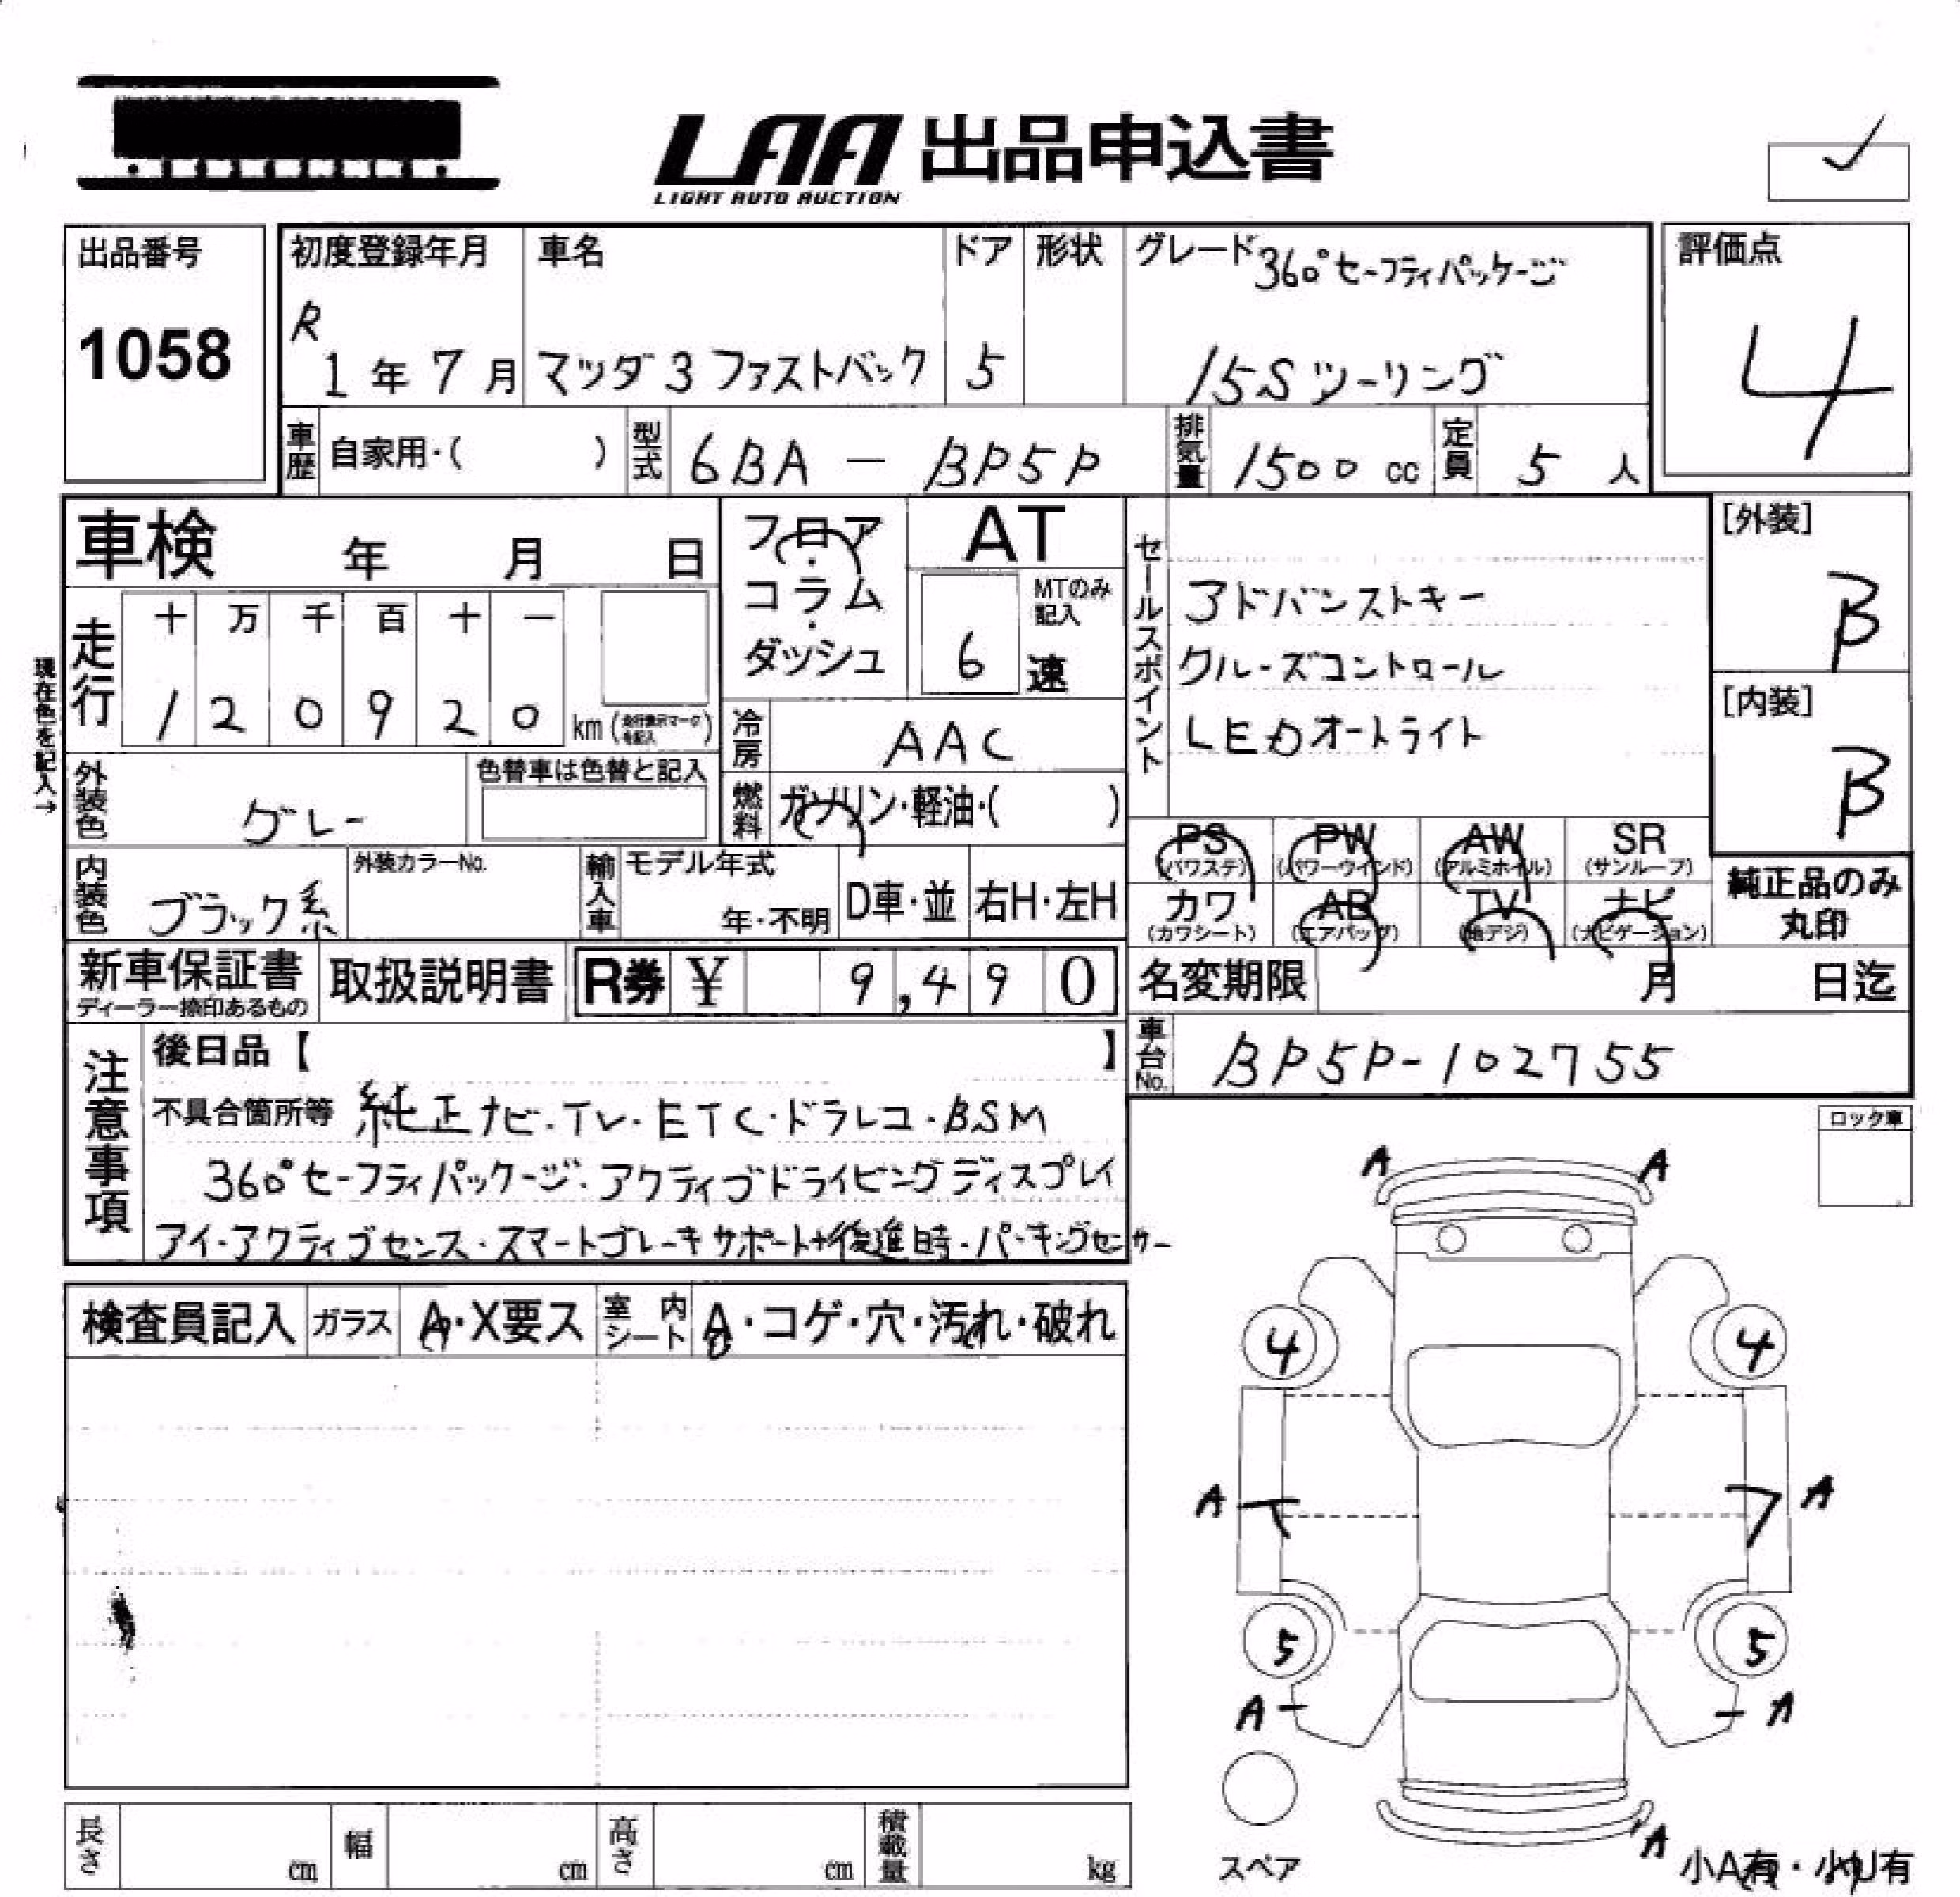 LAA 出品申込書
LIGHT AUTO AUCTION
出品番号
1058
初度登録年月
R
1年7月
車名
マツダ3 ファストバック
ドア
5
形状
グレード 360°セーフティパッケージ
15Sツーリング
評価点
4
車歴 自家用・( )
型式 6BA — BP5P
排気量 1500 cc
定員 5 人
車検 年 月 日
フロア・コラム・ダッシュ
AT
MTのみ記入
6 速
セールスポイント
アドバンストキー
クルーズコントロール
LEDオートライト
[外装]
B
[内装]
B
現在色を記入→
走行
十 万 千 百 十 一
1 2 0 9 2 0 km (走行表示マークを記入)
冷房 AAC
外装色 グレー
色替車は色替と記入
燃料 ガソリン・軽油・( )
PS (パワステ) PW (パワーウインド) AW (アルミホイル) SR (サンルーフ)
カワ (カワシート) AB (エアバッグ) TV (地デジ) ナビ (ナビゲーション)
純正品のみ丸印
内装色 ブラック系
外装カラーNo.
輸入車 モデル年式 年・不明 D車・並 右H・左H
新車保証書
ディーラー捺印あるもの
取扱説明書
R券 ¥ 9,490
名変期限 月 日迄
車台No. BP5P-102755
注意事項
後日品【 】
不具合箇所等 純正ナビ・TV・ETC・ドラレコ・BSM
360°セーフティパッケージ・アクティブドライビングディスプレイ
アイ・アクティブセンス・スマートブレーキサポート+後進時・パーキングセンサー
ロック車
検査員記入 ガラス A・X要ス 室内シート A・コゲ・穴・汚れ・破れ
A A
4 4
A A
5 5
A A
A
スペア
小A有・小U有
長さ cm 幅 cm 高さ cm 積載量 kg